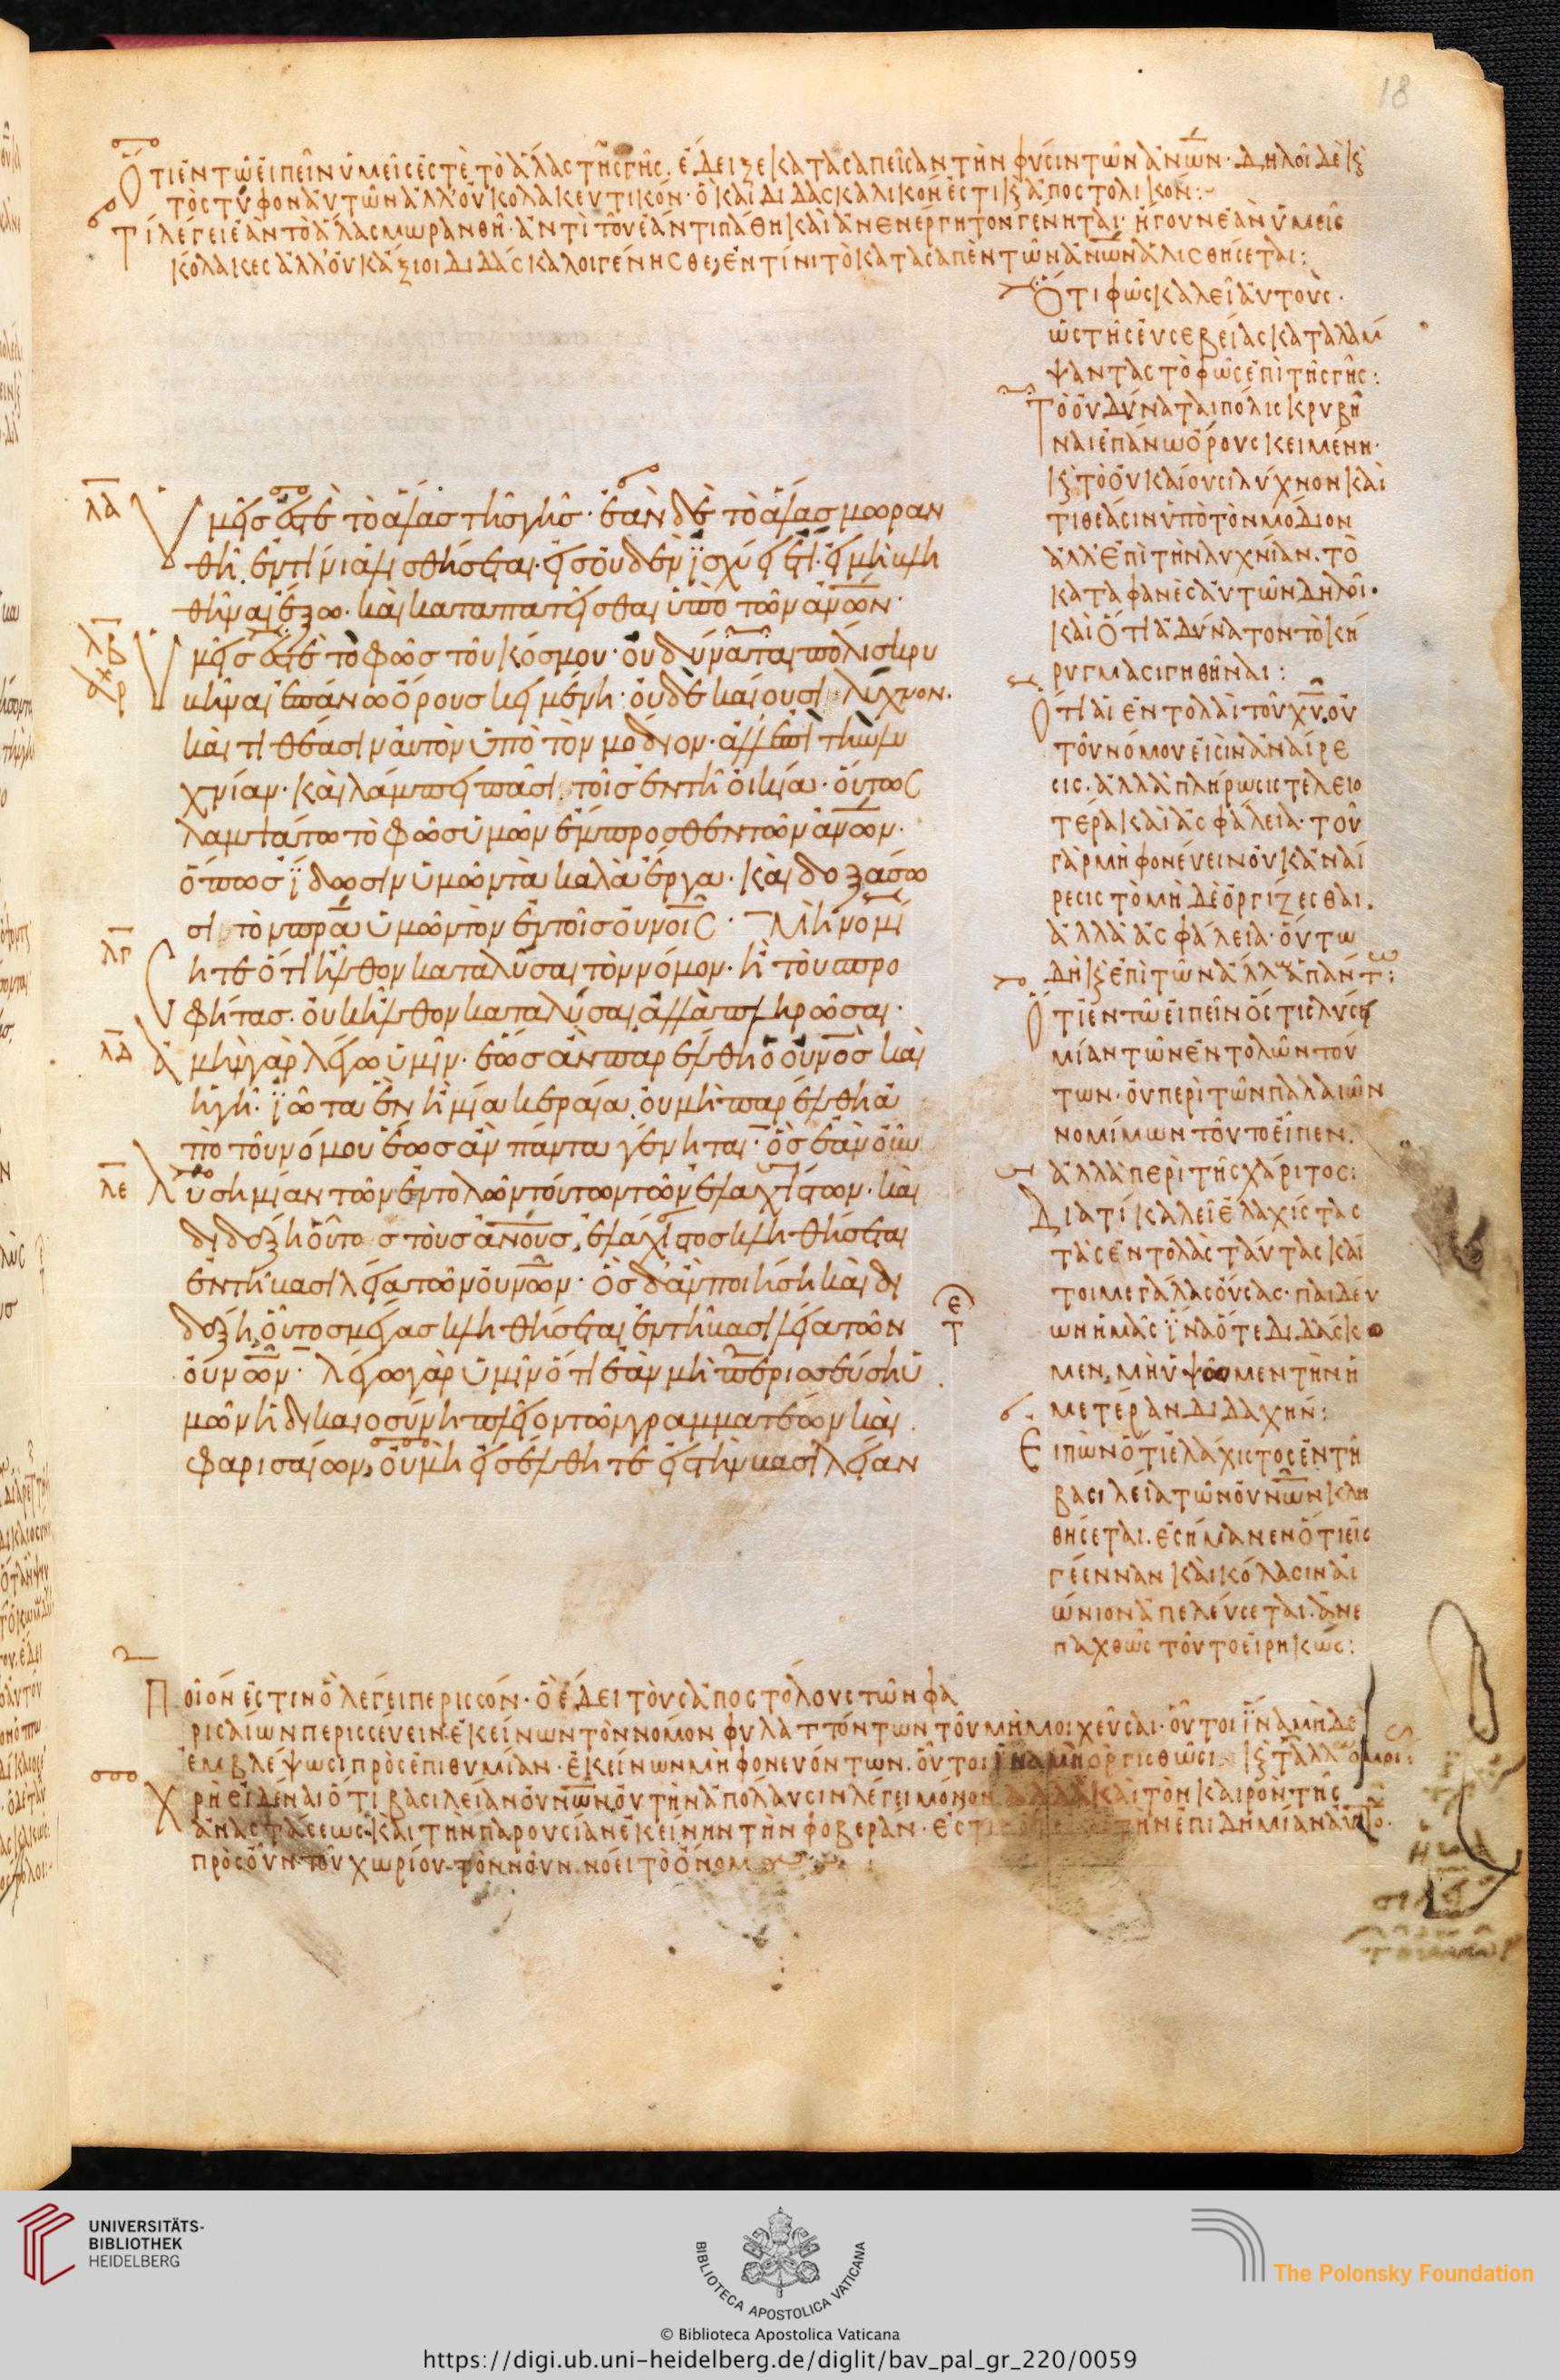 18
Ὅτι ἐν τῷ εἰπεῖν ὑμεῖς ἐστὲ τὸ ἅλας τῆς γῆς. ἔδειξε κατασαπεῖσαν τὴν φύσιν τῶν ἀνων· δηλοῖ δὲ κ(αὶ)
τὸ στύφον αὐτῶν ἀλλ' οὐ κολακευτικόν· ὃ καὶ διδασκαλικὸν ἐστι κ(αὶ) ἀποστολικόν:
Τί λέγει ἐὰν τὸ ἅλας μωρανθῇ· ἀντὶ τοῦ ἐὰν τι πάθη καὶ ἀνενέργητον γένηται· ἤγουν ἐὰν ὑμεῖς
κόλακες ἀλλ' οὐκ ἄξιοι διδάσκαλοι γένησθε, ἐν τίνι τὸ κατασαπὲν τῶν ἀνων ἁλισθήσεται:
λα Ὑμεῖς ἐστὲ τὸ ἅλας τῆς γῆς· ἐὰν δὲ τὸ ἅλας μωραν
θῇ. ἐν τίνι ἁλισθήσεται· εἰς οὐδὲν ἰσχύει ἔτι· εἰ μὴ βλη
θῆναι ἔξω. καὶ καταπατεῖσθαι ὑπὸ τῶν ἀνων·
λβ Ὑμεῖς ἐστὲ τὸ φῶς τοῦ κόσμου· οὐ δύναται πόλις κρυ
βῆναι ἐπάνω ὄρους κειμένη· οὐδὲ καίουσι λύχνον.
καὶ τιθέασιν αὐτὸν ὑπὸ τὸν μόδιον· ἀλλ' ἐπὶ τὴν λυ
χνίαν· καὶ λάμπει πᾶσι τοῖς ἐν τῇ οἰκία· οὕτως
λαμψάτω τὸ φῶς ὑμῶν ἔμπροσθεν τῶν ἀνων·
ὅπως ἴδωσιν ὑμῶν τὰ καλὰ ἔργα· καὶ δοξάσω
σι τὸν πρα ὑμῶν τὸν ἐν τοῖς οὐνοις· Μὴ νομί
λγ ητε ὅτι ἦλθον καταλῦσαι τὸν νόμον· ἢ τοὺς προ
φήτας· οὐκ ἦλθον καταλῦσαι ἀλλὰ πληρῶσαι·
λδ ἀμὴν γὰρ λέγω ὑμῖν· ἕως ἂν παρέλθη ὁ οὐνος καὶ
ἡ γῆ· ἰῶτα ἓν ἢ μία κεραία οὐ μὴ παρέλθη ἀ
πὸ τοῦ νόμου ἕως ἂν πάντα γένηται· ὃς ἐὰν οὖν
λε λύση μίαν τῶν ἐντολῶν τούτων τῶν ἐλαχίστων· καὶ
διδάξη οὕτως τοὺς ἀνους, ἐλάχιστος κληθήσεται
ἐν τῇ βασιλεία τῶν οὐνων· ὃς δ' ἂν ποιήση καὶ δι
δάξη, οὗτος μέγας κληθήσεται ἐν τῇ βασιλεία τῶν
οὐνων· λέγω γὰρ ὑμῖν ὅτι ἐὰν μὴ περισσεύση ὑ
μῶν ἡ δικαιοσύνη πλεῖον τῶν γραμματέων καὶ
φαρισαίων, οὐ μὴ εἰσέλθητε εἰς τὴν βασιλείαν
Ὅτι φῶς καλεῖ αὐτοὺς·
ὡς τῆς εὐσεβείας καταλάμ
ψαντας τὸ φῶς ἐπὶ τῆς γῆς:
Τὸ οὐ δύναται πόλις κρυβῆ
ναι ἐπάνω ὄρους κειμένη·
κ(αὶ) τὸ οὐ καίουσι λύχνον καὶ
τιθέασιν ὑπὸ τὸν μόδιον
ἀλλ' ἐπὶ τὴν λυχνίαν. τὸ
καταφανὲς αὐτῶν δηλοῖ·
καὶ ὅτι ἀδύνατον τὸ κή
ρυγμα σιγηθῆναι:
Ὅτι αἱ ἐντολαὶ τοῦ χυ. οὐ
τοῦ νόμου εἰσὶν ἀναίρε
σις. ἀλλὰ πλήρωσις τελειο
τέρα καὶ ἀσφάλεια· τοῦ
γὰρ μὴ φονεύειν οὐκ ἀναί
ρεσις τὸ μὴ δὲ ὀργίζεσθαι.
ἀλλὰ ἀσφάλεια· οὕτω
δὴ κ(αὶ) ἐπὶ τῶν ἄλλων ἁπάντ:
Ὅτι ἐν τῷ εἰπεῖν ὅστις λύσει
μίαν τῶν ἐντολῶν τού
των· οὐ περὶ τῶν παλαιῶν
νομίμων τοῦτο εἶπεν.
ἀλλὰ περὶ τῆς χάριτος:
Διατί καλεῖ ἐλαχίστας
τὰς ἐντολὰς ταύτας καί
τοι μεγάλας οὔσας· παιδεύ
ων ἡμᾶς ἵνα ὅτε διδάσκο
μεν, μὴ ὑψῶμεν τὴν ἡ
μετέραν διδαχήν:
Εἰπὼν ὅτι ἐλάχιστος ἐν τῇ
βασιλεία τῶν οὐνων κλη
θήσεται. ἐσήμανεν ὅτι εἰς
γέενναν καὶ κόλασιν αἰ
ώνιον ἀπελεύσεται. ἀνε
παχθῶς τοῦτο εἰρηκώς:
Ποῖον ἐστιν ὃ λέγει περισσόν· ὃ ἔδει τοὺς ἀποστόλους τῶν φα
ρισαίων περισσεύειν. ἐκείνων τὸν νόμον φυλαττόντων τοῦ μὴ μοιχεῦσαι· οὗτοι ἵνα μὴ δὲ
ἐμβλέψωσι πρὸς ἐπιθυμίαν· ἐκείνων μὴ φονευόντων. οὗτοι ἵνα μὴ ὀργισθῶσι. κ(αὶ) τἆλλα ὁμοι:
Χρὴ εἰδέναι ὅτι βασιλείαν οὐνων οὐ τὴν ἀπόλαυσιν λέγει μόνον ἀλλὰ καὶ τὸν καιρὸν τῆς
ἀναστάσεως. καὶ τὴν παρουσίαν ἐκείνην τὴν φοβεράν· ἔστι τὴν ἐπιδημίαν αὐτο·
πρὸς οὖν τοῦ χωρίου τὸν νοῦν. νόει τὸ ὄνομ
UNIVERSITÄTS-
BIBLIOTHEK
HEIDELBERG
BIBLIOTECA APOSTOLICA VATICANA
The Polonsky Foundation
© Biblioteca Apostolica Vaticana
https://digi.ub.uni-heidelberg.de/diglit/bav_pal_gr_220/0059